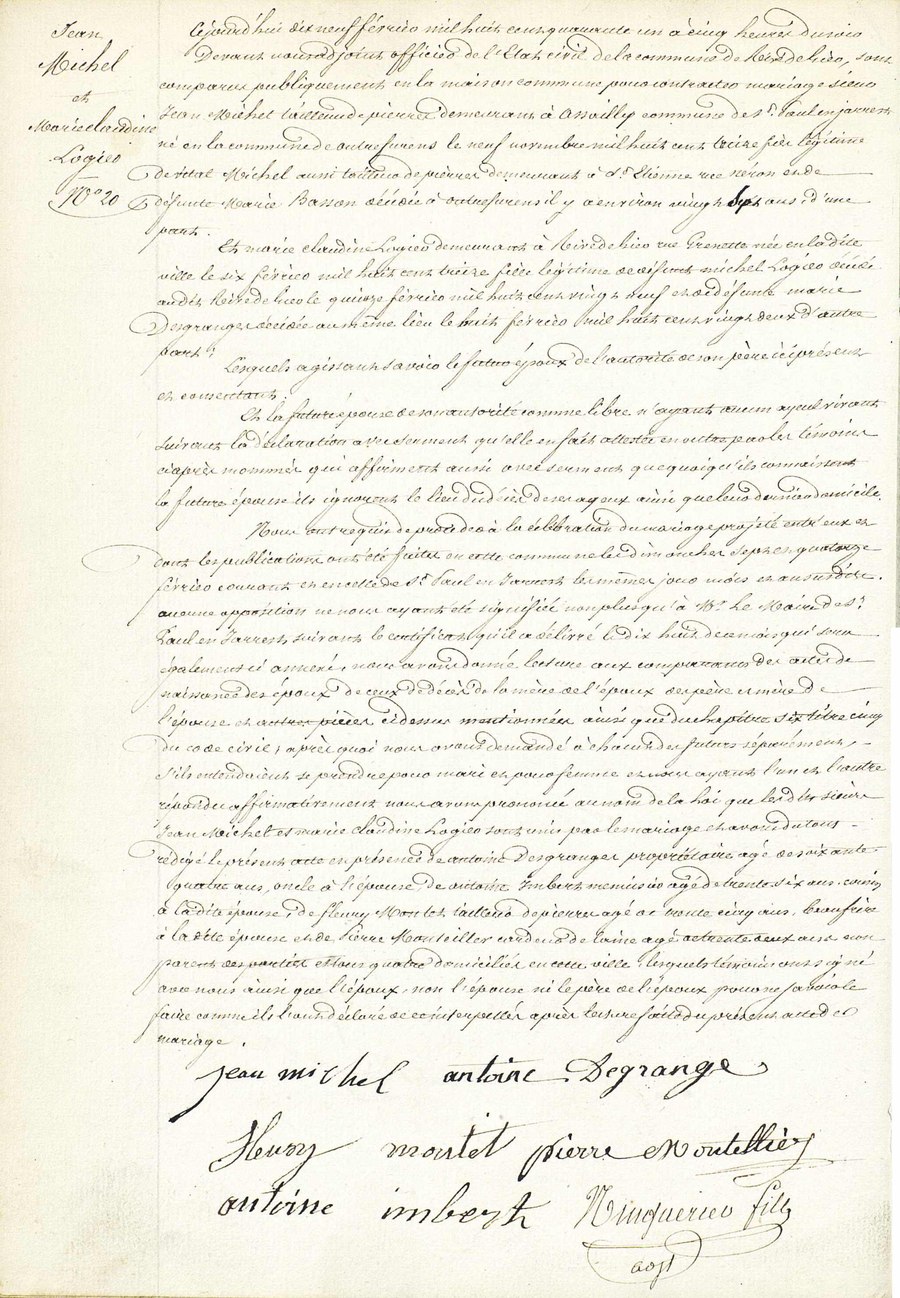 Jean
Michel
et
Marie claudine
Logier
N° 20
Cejourd'hui dix neuf février mil huit cent quarante un à cinq heures du soir
Devant nous adjoint officier de l'Etat civil de la commune de Rivedegier, sont
comparus publiquement en la maison commune pour contracter mariage sieur
Jean Michel tailleur de pierres demeurant à Assailly commune de St Paul en jarrest
né en la commune de outrefurens le neuf novembre mil huit cent treize fils légitime
de vital Michel aussi tailleur de pierres demeurant à St Etienne rue néron et de
défunte Marie Basson décédée à outrefurens il y a environ vingt sept ans, d'une
part.
Et marie claudine Logier demeurant à Rivedegier rue Grenette née en la dite
ville le six février mil huit cent treize fille légitime de défunt michel Logier décédé
audit Rivedegier le quinze février mil huit cent vingt neuf et de défunte marie
Desgranges décédée au même lieu le huit février mil huit cent vingt deux d'autre
part,
Lesquels agissant savoir le futur époux de l'autorité de son père ici présent
et consentant.
Et la future épouse de son autorité comme libre n'ayant aucun ayeul vivant
suivant la déclaration avec serment qu'elle en fait attestée en outre par les témoins
ci après nommés qui affirment aussi avec serment que quoiqu'ils connaissent
la future épouse ils ignorent le lieu du décès de ses ayeux ainsi que leur dernier domicile.
Nous ont requis de procéder à la célébration du mariage projeté entr'eux et
dont les publications ont été faites en cette commune les dimanches sept et quatorze
février courant et en celle de St Paul en Jarrest les mêmes jour mois et an susdits.
aucune opposition ne nous ayant été signifiée non plus qu'à Mr le Maire de St
Paul en Jarrest suivant le certificat qu'il a délivré le dix huit de ce mois qui sera
également ci annexé, nous avons donné lecture aux comparants des actes de
naissance des époux de ceux de décès de la mère de l'époux des père et mère de
l'épouse et autres pièces ci dessus mentionnées ainsi que du chapitre six titre cinq
du code civil, après quoi nous avons demandé à chacun des futurs séparément,
s'ils entendaient se prendre pour mari et pour femme et nous ayant l'un et l'autre
répondu affirmativement nous avons prononcé au nom de la loi que lesdits sieur
Jean Michel et marie claudine Logier sont unis par le mariage et avons du tout
rédigé le présent acte en présence de antoine Desgranges propriétaire agé de soixante
quatre ans, oncle à l'épouse, de antoine Imbert menuisier agé de trente six ans cousin
à la dite épouse, de fleury Montet tailleur de pierres agé de trente cinq ans, beaufrère
à la dite épouse et de Pierre Monteiller cardeur de laine agé de trente deux ans non
parent des parties et tous quatre domiciliés en cette ville, lesquels témoins ont signé
avec nous ainsi que l'époux, non l'épouse ni le père de l'époux pour ne savoir le
faire comme ils l'ont déclaré de ce interpellés après lecture faite du présent acte de
mariage.
jean michel antoine Degrange
fleury montet pierre Montellier
antoine imbert fils
adjt